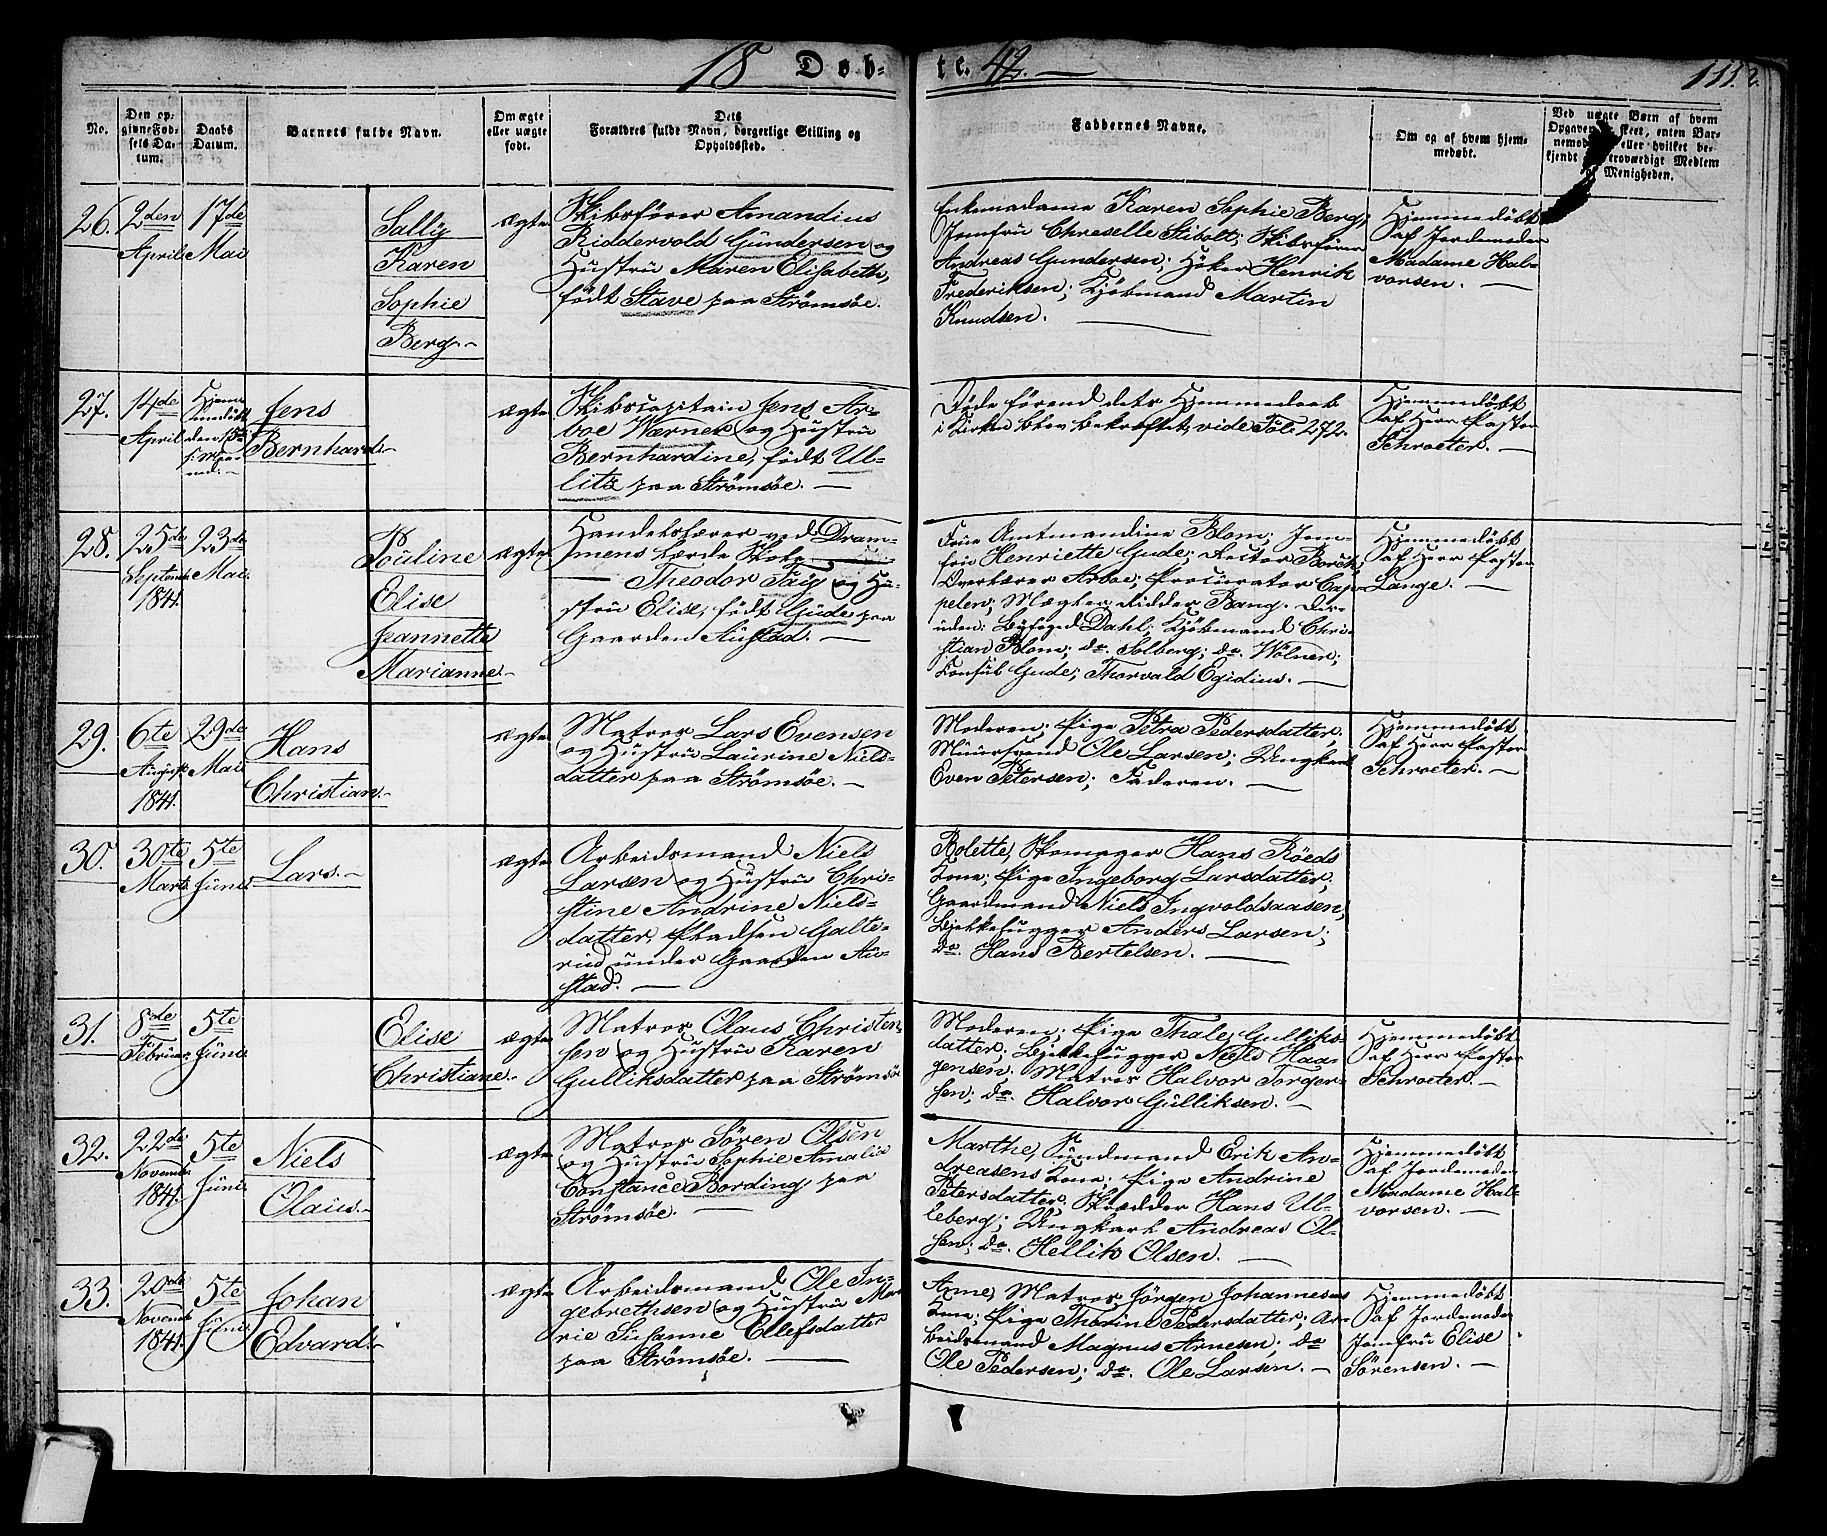 18 Døb-
te. 42. 111.
No.
Den op-
givne Fød-
sels Da-
tum.
Daabs
Datum.
Barnets fulde Navn.
Om ægte
eller uægte
født.
Dets
Forældres fulde Navn, borgerlige Stilling og
Opholdssted.
Faddernes Navne.
Om og af hvem hjem-
medøbt.
Ved uægte Børn af hvem
Opgaven skeet, enten Bar-
nemod eller hvilket be-
kjendt troværdigt Medlem
Menigheden.
26.
2den
April
17de
Mai
Sally
Karen
Sophie
Berg.
ægte
Skibsfører Amandius
Riddervold Gundersen og
Hustru Maren Elisabeth,
født Stave paa Strømsøe.
Enkemadame Karen Sophie Berg;
Jomfru Chreselle Stibolt; Skibsfører
Andreas Gundersen; Høker Henrik
Frederiksen; Kjøbmand Martin
Knudsen.
Hjemmedøbt
af Jordemoder
Madame Hal-
vorsen.
27.
14de
April
Hjem-
medøbt
den 15
Jens
Bernhard.
ægte
Skibscapitain Jens Ar-
boe Werner og Hustru
Bernhardine, født Ub-
litz paa Strømsøe.
Døde førend dets Hjemmedaab
i Kirken blev bekræftet, vide Fol: 272.
Hjemmedøbt
af Herr Pastor
Schroeter.
28.
25de
Septemb.
1841.
23de
Mai
Pouline
Elise
Jeannette
Marianne.
ægte
Haandelslærer ved Dram-
mens lærde Skole
Theodor og Hu-
stru Elise, født Gude paa
Gaarden Austad.
Frue Amtmandinde Blom; Jom-
fru Henriette Gude; Rector Borch;
Overlærer Arboe; Procurator Cap-
pelen; Mægler Ridder Bang.
uden: Byfoged Dahl; Kjøbmand Chri-
stian Blom; do. Solberg; do. Wölner;
Konsul Gude; Thorvald Egidius.
Hjemmedøbt
af Herr Pastor
Lange.
29.
6te
August
1841.
29de
Mai
Hans
Christian.
ægte
Matros Lars Evensen
og Hustru Laurine Niels-
datter paa Strømsøe.
Moderen; Pige Petra Pedersdatter;
Muursvend Ole Larsen; Ungkarl
Even Petersen; Faderen.
Hjemmedøbt
af Herr Pastor
Schroeter.
30.
30te
Marts
5te
Juni
Lars.
ægte
Arbeidsmand Niels
Larsen og Hustru Chri-
stine Andrine Niels-
datter, Pladsen Galte-
rud under Gaarden Au-
stad.
Bolette, Skomager Hans Röeds
Kone; Pige Ingeborg Larsdatter;
Gaardmand Niels Ingvoldsaasen;
Bjelkehugger Anders Larsen;
do. Hans Bertelsen.
31.
8de
Februar
5te
Juni
Elise
Christiane.
ægte
Matros Olaus Christen-
sen og Hustru Karen
Gulliksdatter paa Strømsøe
Moderen; Pige Thale Gulliks-
datter; Bjelkehugger Niels Haa-
gensen. Matros Halvor Torger-
sen; do. Halvor Gulliksen.
Hjemmedøbt
af Herr Pastor
Schroeter.
32.
22de
Novemb.
1841.
5te
Juni
Niels
Olaus.
ægte
Matros Sören Olsen
og Hustru Sophie Amalie
Constance Bording, paa
Strømsøe.
Marthe, Kudmand Erik An-
dreasens Kone; Pige Andrine
Petersdatter, Skrædder Hans Ul-
leberg; Ungkarl Andreas Ol-
sen; do. Hellik Olsen.
Hjemmedøbt
af Jordemoder
Madame Hal-
vorsen.
33.
20de
Novemb.
1841.
5te
Juni
Johan
Edvard.
ægte
Arbeidsmand Ole In-
gebrethsen og Hustru Ma-
rie Susanne Ellefsdatter
paa Strømsøe.
Anne, Matros Jörgen Johannesens
Kone; Pige Thorine Pedersdatter; Ar-
beidsmand Magnus Arnesen; do
Ole Pedersen; do. Ole Larsen.
Hjemmedøbt
af Jordemoder
Jomfru Elise
Sörensen.